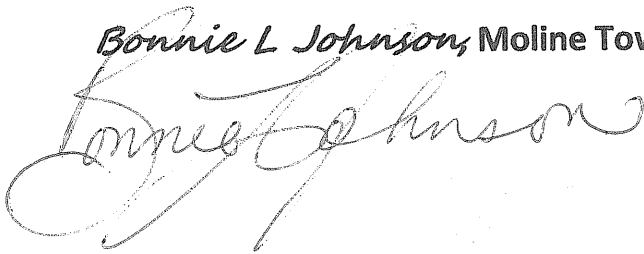 Bonnie L Johnson, Moline Tow
Bonnie L Johnson